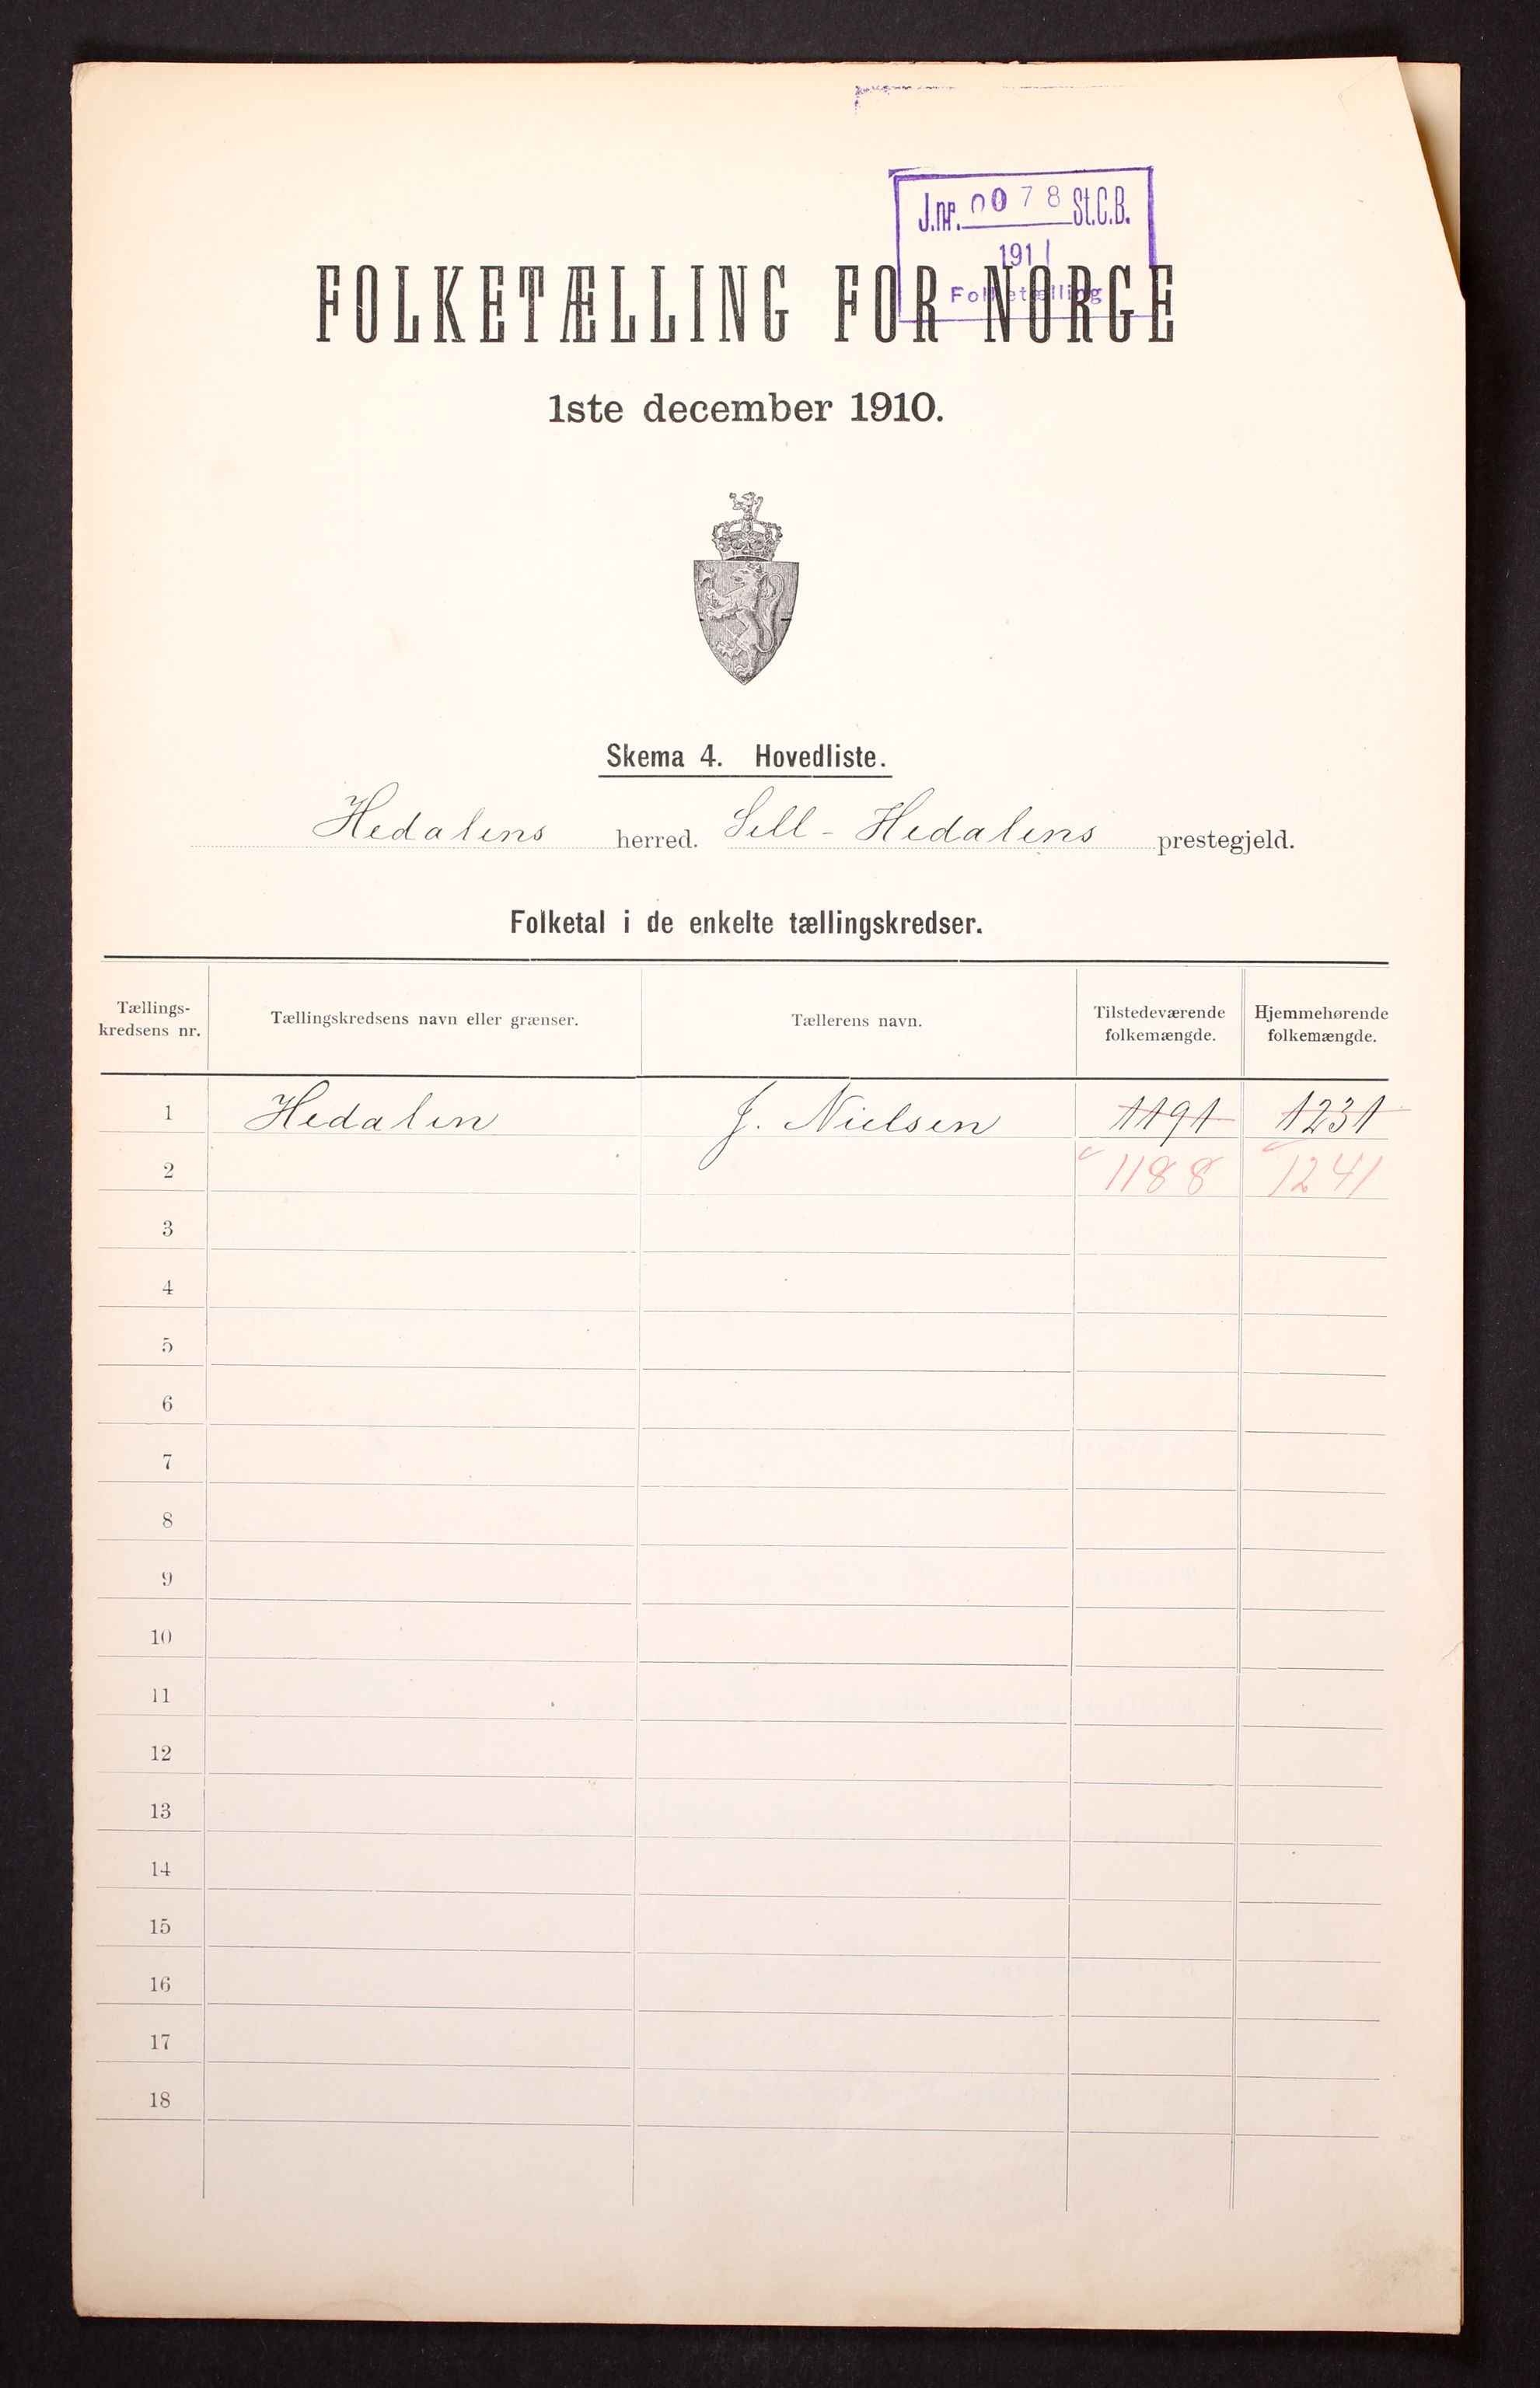 J.nr. 0078 St.C.B.
1911
Folketælling
FOLKETÆLLING FOR NORGE
1ste december 1910.
Skema 4. Hovedliste.
Hedalens herred. Sell-Hedalens prestegjeld.
Folketal i de enkelte tællingskredser.
Tællings-
kredsens nr.
Tællingskredsens navn eller grænser.
Tællerens navn.
Tilstedeværende
folkemængde.
Hjemmehørende
folkemængde.
1 Hedalen J. Nielsen 1191 1231
2 1188 1241
3
4
5
6
7
8
9
10
11
12
13
14
15
16
17
18